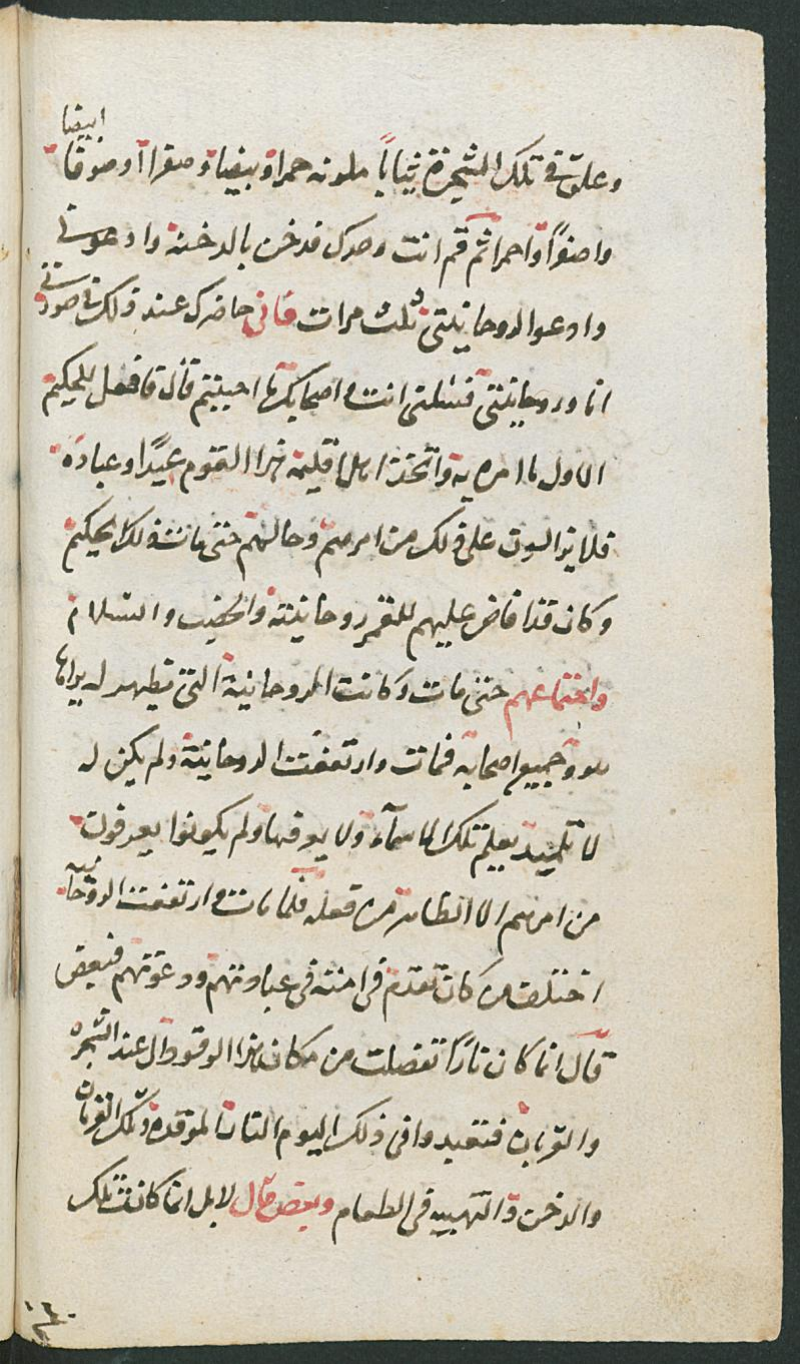 ابيضا
وعلق في تلك الشجرة ثيابا ملونه حمرا وبيضا وصفرا او صوفا
واصفرا واحمرا ثم قم انت وحدك فدخن بالدخنه وادعونى
وادعوا لروحانيتى ثلث مرات فانى حاضرك عند ذلك فى صورتى
انا وروحانيتى فتسئلنى انت واصحابك ما احببتم قال فافعل الحكيم
الاول ما امره به واتخذ اهل اقليمه هذا القوم عيدا وعباده
فلا يزالون على ذلك من امرهم وحالهم حتى مات ذلك الحكيم
وكان عليهم للقمر روحانيته والسلام
واجتماعهم حتى مات وكانت الروحانية التى تظهر له يراها
هو وجميع اصحابه فمات وارتفعت الروحانية ولم يكن له
لا تلميذ يعلم تلك الاسماء ولا يعرفها ولم يكونوا يعرفون
من امرهم الا الظاهر من فعله فلما مات وارتفعت الروحانيه
اختلف من كان تقدم فى امنته فى عبادتهم ودعوتهم فبعض
قال انما كان نارا تفضلت من مكان هذا الوقود ال عند الشجره
والقربان فتعبدوا فى ذلك اليوم النار الموقده وتلك القربان
والدخن والتهييه فى الطعام وبعض قال لا بل انما كانت تلك